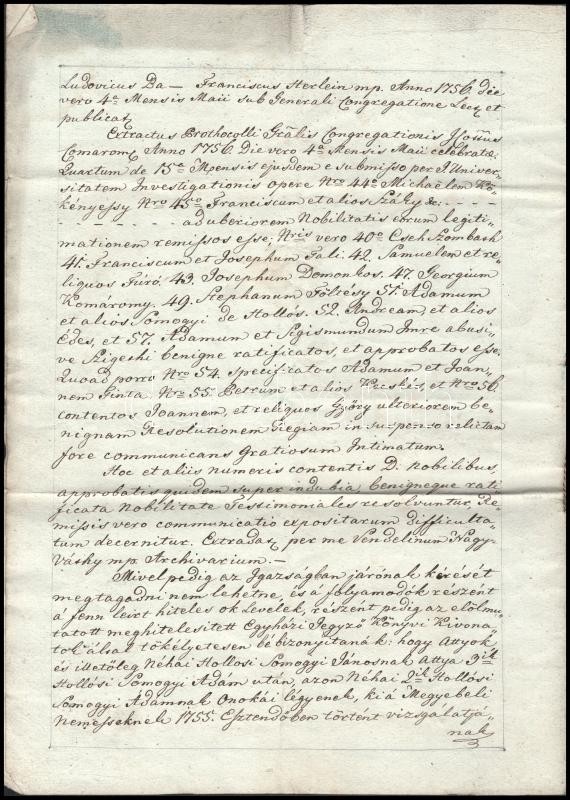 Ludovicus Da— Franciscus Herlein mp. Anno 1756 die
vero 4a Mensis Maii sub Generali Congregatione Lect et
publicat
Extractus Prothocolli Gralis Congregationis I. Cottus
Comarom. Anno 1756. Die vero 4a Mensis Maii celebrata.
Quartum de 15a Mensis ejusdem e submisso per I. Univer-
sitatem Investigationis opere Nro 44o Michaëlem Kö-
kényessy Nro 45to Franciscum et alios Száky &c: - - - -
- - - - - - ad uberiorem Nobilitatis eorum legiti-
mationem remissos esse; Nris vero 40o Cseh Szombath
41. Franciscum et Josephum Fali. 42. Samuelem et re-
liquos Fúró. 43. Josephum Domonkos. 47. Georgium
Komáromy. 49. Stephanum Földésy 51. Adamum
et alios Somogyi de Hollós. 52. Andream, et alios
Édes, et 57. Adamum et Sigismundum Imre abusi-
ve Szigethi benigne ratificatos, et approbatos esse.
Quoad porro Nro 54. specificatos Adamum et Joan-
nem Pinta. Nro 55. Petrum et alios Kecskés, et Nro 56.
contentos Joannem, et reliquos Győry ulteriorem be-
nignam Resolutionem Regiam in suspenso relictam
fore communicans Gratiosum Intimatum.
Hoc et aliis numeris contentis D. Nobilibus,
approbatis quidem super indubia, benigneque rati
ficata Nobilitate Testimoniales resolvuntur, Re-
missis vero communicatio expositarum difficulta-
tum decernitur. Extradat per me Vendelinum Nagy-
Váthy mp. Archivarium.—
Mivel pedig az Igazságban járónak kérését
megtagadni nem lehetne, és a folyamodók részént
á fenn leirt hiteles ok Levelek, részent pedig az elölmu-
tatott meghitelesitett Egyházi Jegyző Könyvi Kivona-
tok által tökélyetesen bébizonyitanák: hogy Attyok
és illetőleg Néhai Hollósi Somogyi Jánosnak Attya 3dik
Hollósi Somogyi Adam után, azon Néhai 2dik Hollósi
Somogyi Adamnak Onokái légyenek, ki á Megyebeli
Nemesseknek 1755. Esztendőben történt vizsgálatjá-
nak